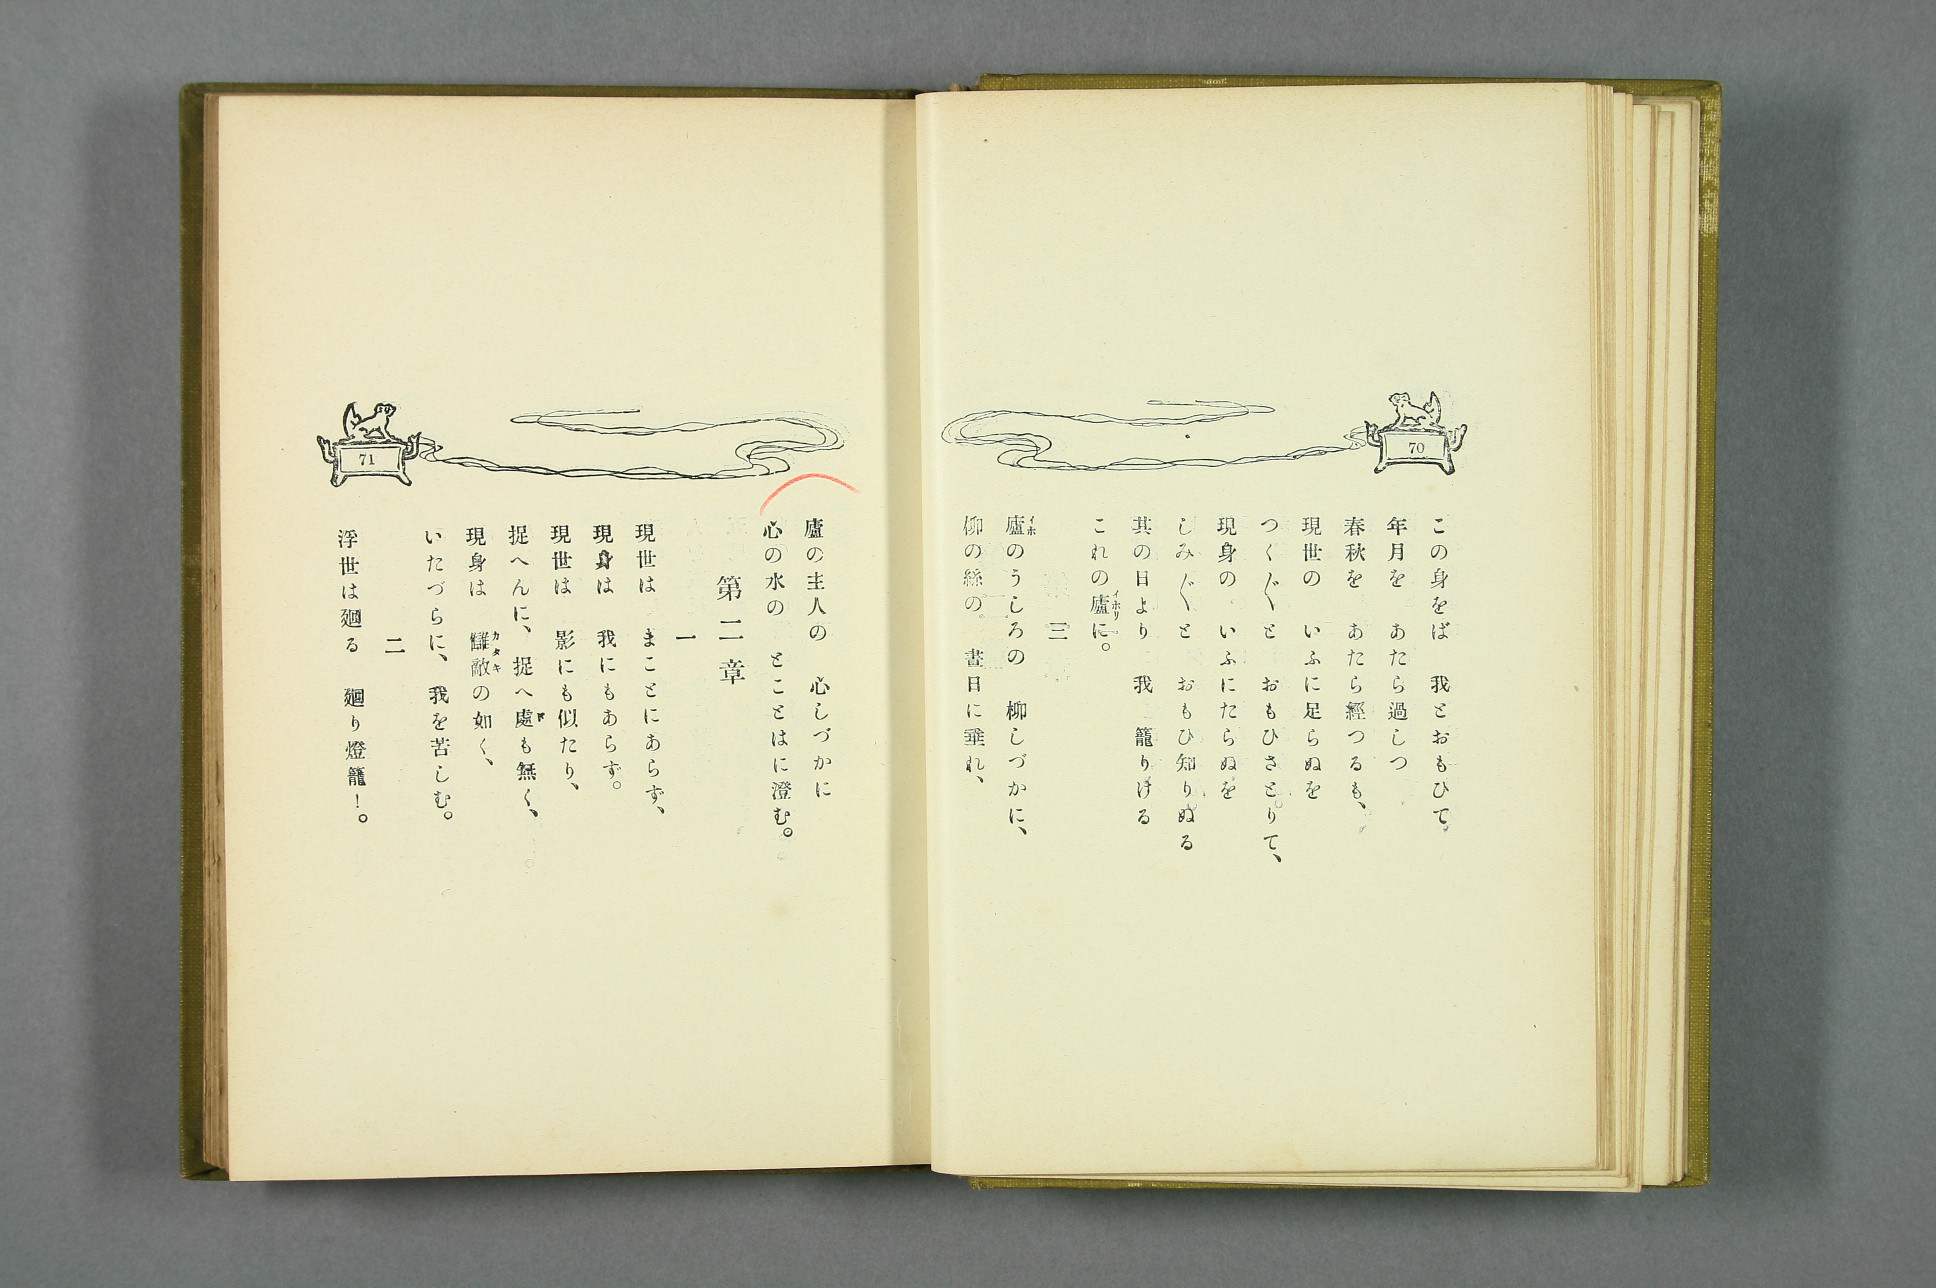 70
この身をば　我とおもひて、
年月を　あたら過しつ
春秋を　あたら經つるも、
現世の　いふに足らぬを
つく〲と　おもひさとりて、
現身の　いふにたらぬを
しみ〲と　おもひ知りぬる
其の日より　我　籠りける
これの廬イホリに。
三
廬イホのうしろの　柳しづかに、
柳の絲の　晝日に垂れ、
71
廬の主人の　心しづかに
心の水の　とことはに澄む。
第二章
一
現世は　まことにあらず、
現身は　我にもあらず。
現世は　影にも似たり、
捉へんに、捉へ處ドも無く、
現身は　讎敵カタキの如く、
いたづらに、我を苦しむ。
二
浮世は廻る　廻り燈籠！。